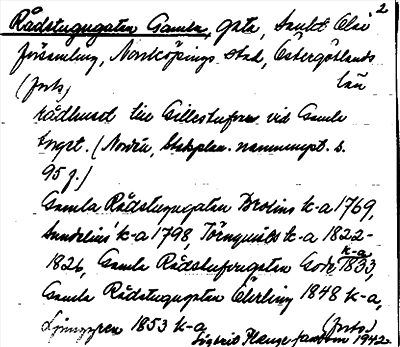 2
Rådstugugatan Gamla, gata, Sankt Olai
församling, Norrköpings stad, Östergötlands
län
(forts)
rådhuset till Gillestufvan vid Gamla
torget. (Nordén, Stadsplan. namnunpt. s.
95 f.)
Gamla Rådstugugatan Brolins k-a 1769,
Sundelius' k-a 1798, Törnquists k-a 1822-
1826, Gamla Rådstufvugatan Gode k-a 1833,
Gamla Rådstugugatan Elerling 1848 k-a,
Ljunggren 1853 k-a
(forts)
1942